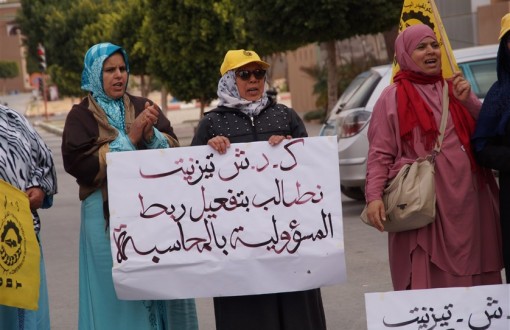 ك.د.ش تيزنيت
نطالب بتفعيل ربط
المسؤولية بالمحاسبة
ش.تيزنيت